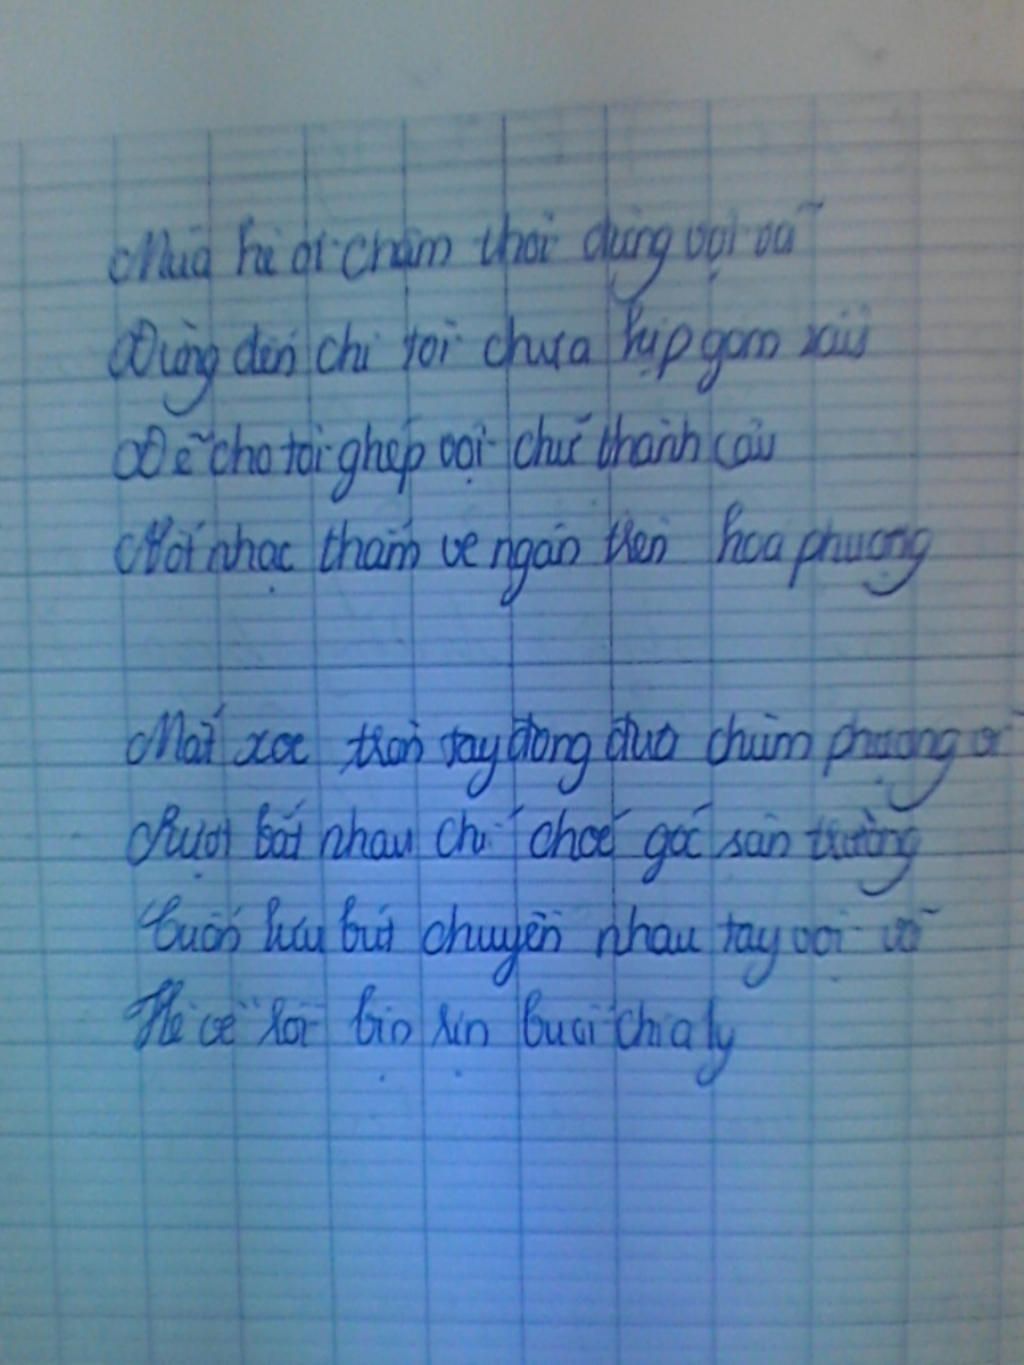 Mùa hè ơi chậm thôi đừng vội vã
Đừng đến khi tôi chưa kịp gom
Để cho tôi ghép vội chữ thành câu
Nốt nhạc thầm ve ngân trên hoa phượng
Mắt xoe tròn tay đong đưa chùm phượng
Rượt bắt nhau chí choé góc sân trường
Cuốn lưu bút chuyền nhau tay vội vã
Hè về rồi bịn rịn buổi chia ly